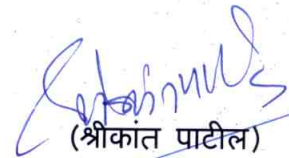 (श्रीकांत पाटील)